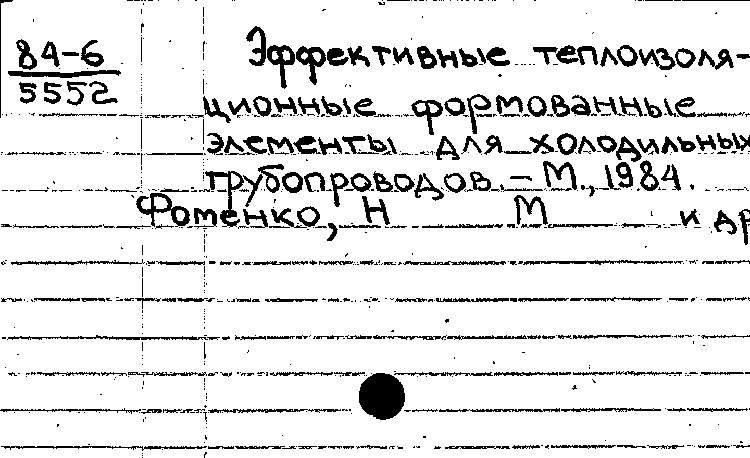 84-6
5552
Эффективные теплоизоля-
ционные формованные
элементы для холодильных
трубопроводов. – М., 1984.
Фоменко, Н М и др